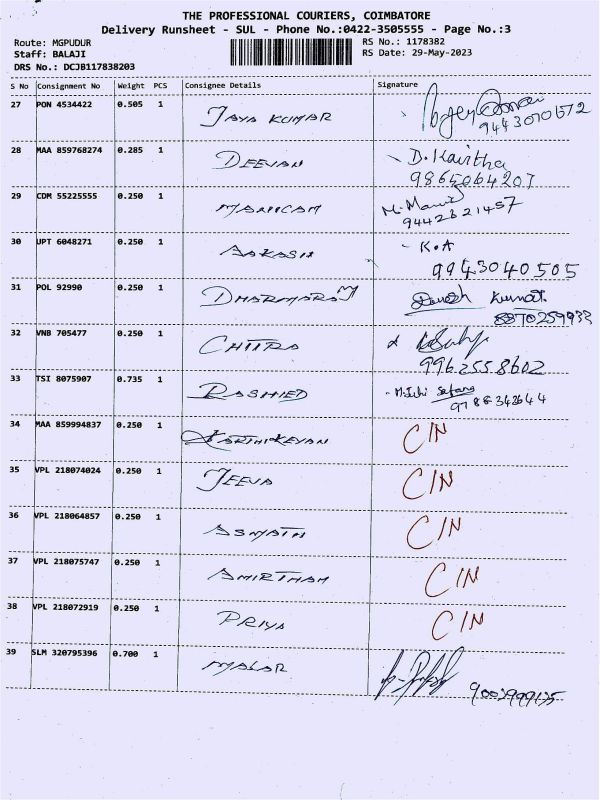 THE PROFESSIONAL COURIERS, COIMBATORE
Delivery Runsheet - SUL - Phone No.:0422-3505555 - Page No.:3
Route: MGPUDUR RS No.: 1178382
Staff: BALAJI RS Date: 29-May-2023
DRS No.: DCJB117838203
S No Consignment No Weight PCS Consignee Details Signature
27 PON 4534422 0.505 1 JAYA KUMAR 9443070572
28 MAA 859768274 0.285 1 DEEVAN D. Kavitha
9865064207
29 CDM 55225555 0.250 1 MANICAM M. Mani
9442621457
30 UPT 6048271 0.250 1 AAKASH K.A
9943040505
31 POL 92990 0.250 1 DHARMARAJ Dinesh Kumar.
8870259933
32 VNB 705477 0.250 1 CHITRA
9962558602
33 TSI 8075907 0.735 1 RASHIED
9786342644
34 MAA 859994837 0.250 1 KARTHIKEYAN C/N
35 VPL 218074024 0.250 1 JEEVA C/N
36 VPL 218064857 0.250 1 ASMATH C/N
37 VPL 218075747 0.250 1 AMIRTHAM C/N
38 VPL 218072919 0.250 1 PRIYA C/N
39 SLM 320795396 0.700 1 MALAR 9003999135